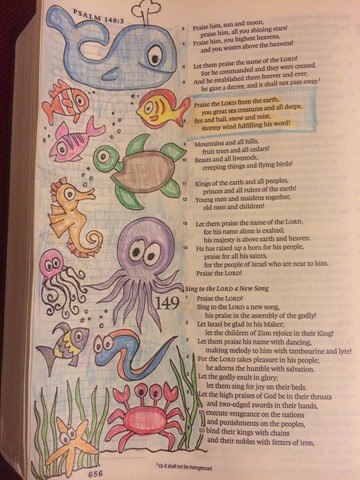 PSALM 148:3
3 Praise him, sun and moon,
praise him, all you shining stars!
4 Praise him, you highest heavens,
and you waters above the heavens!
5 Let them praise the name of the LORD!
For he commanded and they were created.
6 And he established them forever and ever;
he gave a decree, and it shall not pass away.¹
7 Praise the LORD from the earth,
you great sea creatures and all deeps,
8 fire and hail, snow and mist,
stormy wind fulfilling his word!
9 Mountains and all hills,
fruit trees and all cedars!
10 Beasts and all livestock,
creeping things and flying birds!
11 Kings of the earth and all peoples,
princes and all rulers of the earth!
12 Young men and maidens together,
old men and children!
13 Let them praise the name of the LORD,
for his name alone is exalted;
his majesty is above earth and heaven.
14 He has raised up a horn for his people,
praise for all his saints,
for the people of Israel who are near to him.
Praise the LORD!
Sing to the LORD a New Song
149 Praise the LORD!
Sing to the LORD a new song,
his praise in the assembly of the godly!
2 Let Israel be glad in his Maker;
let the children of Zion rejoice in their King!
3 Let them praise his name with dancing,
making melody to him with tambourine and lyre!
For the LORD takes pleasure in his people;
he adorns the humble with salvation.
Let the godly exult in glory;
let them sing for joy on their beds.
Let the high praises of God be in their throats
and two-edged swords in their hands,
to execute vengeance on the nations
and punishments on the peoples,
to bind their kings with chains
and their nobles with fetters of iron,
¹ Or it shall not be transgressed
656